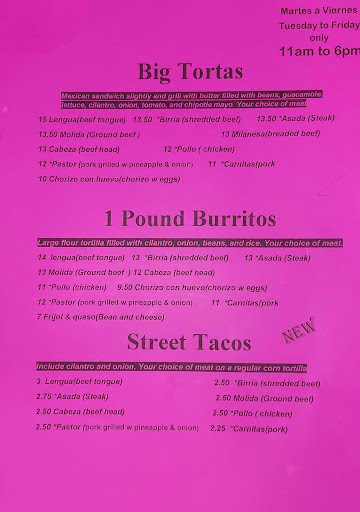 Martes a Viernes
Tuesday to Friday
only
11am to 6pm
Big Tortas
Mexican sandwich slightly and grill with butter filled with beans, guacamole,
lettuce, cilantro, onion, tometo, and chipotle mayo. Your choice of meat
15 Lengua(beef tongue) 13.50 *Birria (shredded beef) 13.50 *Asada (Steak)
13.50 Molida (Ground beef ) 13 Milanesa(breaded beef)
13 Cabeza (beef head) 12 *Pollo ( chicken)
12 *Pastor (pork grilled w pineapple & onion) 11 *Carnitas(pork
10 Chorizo con huevo(chorizo w eggs)
1 Pound Burritos
Large flour tortilla filled with cilantro, onion, beans, and rice. Your choice of meat.
14 lengua(beef tongue) 13 *Birria (shredded beef) 13 *Asada (Steak)
13 Molida (Ground beef ) 12 Cabeza (beef head)
11 *Pollo (chicken) 9.50 Chorizo con huevo(chorizo w eggs)
12 *Pastor (pork grilled w pineapple & onion) 11 *Carnitas(pork
7 Frijol & queso(Bean and cheese)
Street Tacos
NEW
Include cilantro and onion. Your choice of meat on a regular corn tortilla
3 Lengua(beef tongue) 2.50 *Birria (shredded beef)
2.75 *Asada (Steak) 2.50 Molida (Ground beef)
2.50 Cabeza (beef head) 2.50 *Pollo ( chicken)
2.50 *Pastor (pork grilled w pineapple & onion) 2.25 *Carnitas(pork)